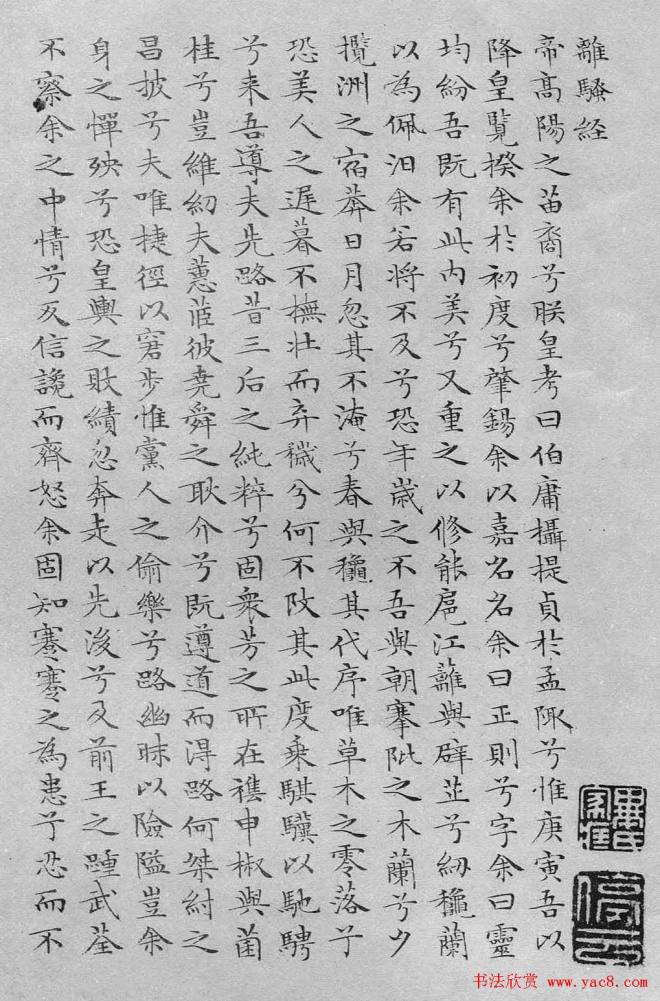 離騷経
帝高陽之苗裔兮朕皇考曰伯庸攝提貞於孟陬兮惟庚寅吾以
降皇覽揆余於初度兮肇錫余以嘉名名余曰正則兮字余曰靈
均紛吾既有此内美兮又重之以修能扈江蘺與辟芷兮紉龝蘭
以為佩汨余若將不及兮恐年歳之不吾與朝搴阰之木蘭兮夕
攬洲之宿莽日月忽其不淹兮春與龝其代序唯草木之零落兮
恐美人之遲暮不撫壮而弃穢兮何不改其此度乗騏驥以馳騁
兮来吾導夫先路昔三后之純粹兮固衆芳之所在襍申椒與菌
桂兮豈維紉夫蕙茝彼堯舜之耿介兮既遵道而得路何桀紂之
昌披兮夫唯捷徑以窘步惟黨人之偷樂兮路幽昧以險隘豈余
身之憚殃兮恐皇輿之敗績忽奔走以先後兮及前王之踵武荃
不察余之中情兮反信讒而齊怒余固知謇謇之為患兮忍而不
書法欣賞 www.yac8.com